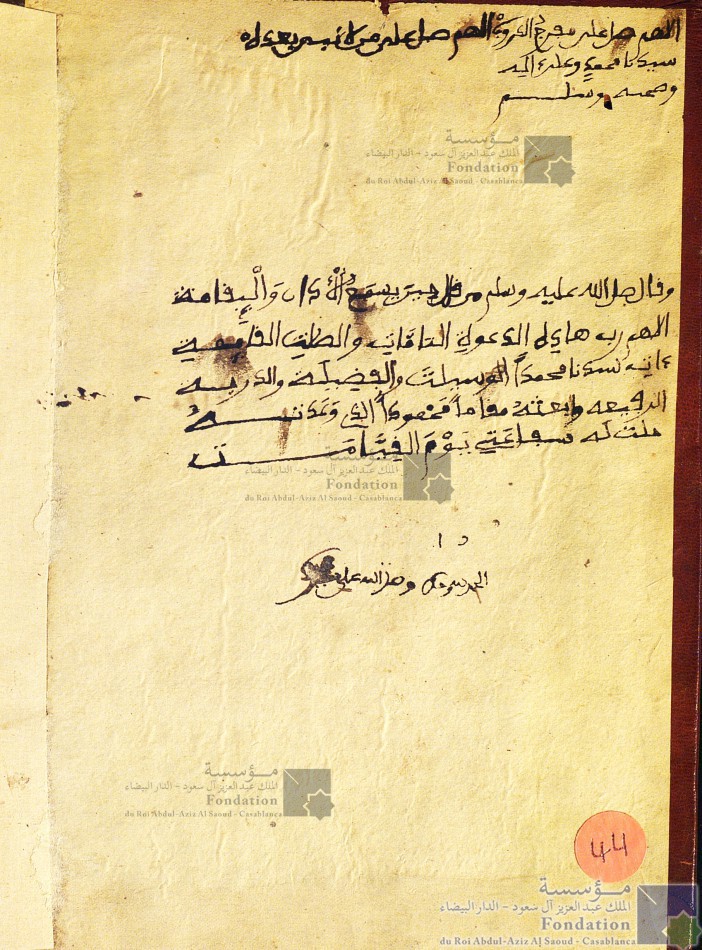 اللهم صل على مفرج الكروب اللهم صل على من لا نبي بعده
سيدنا محمد وعلى ءاله
وصحبه وسلم
مؤسسة
الملك عبد العزيز آل سعود - الدار البيضاء
Fondation
du Roi Abdul-Aziz Al Saoud - Casablanca
وقال صل الله عليه وسلم من قال حين يسمع الأذان وَالْإِقامة
اللهم رب هاذه الدعوة التامات والصلات القايمة
ءات سيدنا محمداً الوسيلت والفضيلة والدرجة
الرفيعه وابعثه مقاماً محموداً الذي وعدته
حلت له شفاعتي يَوْمَ القِيَامَت
مؤسسة
الملك عبد العزيز آل سعود - الدار البيضاء
Fondation
du Roi Abdul-Aziz Al Saoud - Casablanca
الحمد لله وحده وصل الله على
مؤسسة
الملك عبد العزيز آل سعود - الدار البيضاء
Fondation
du Roi Abdul-Aziz Al Saoud - Casablanca
44
مؤسسة
الملك عبد العزيز آل سعود - الدار البيضاء
Fondation
du Roi Abdul-Aziz Al Saoud - Casablanca